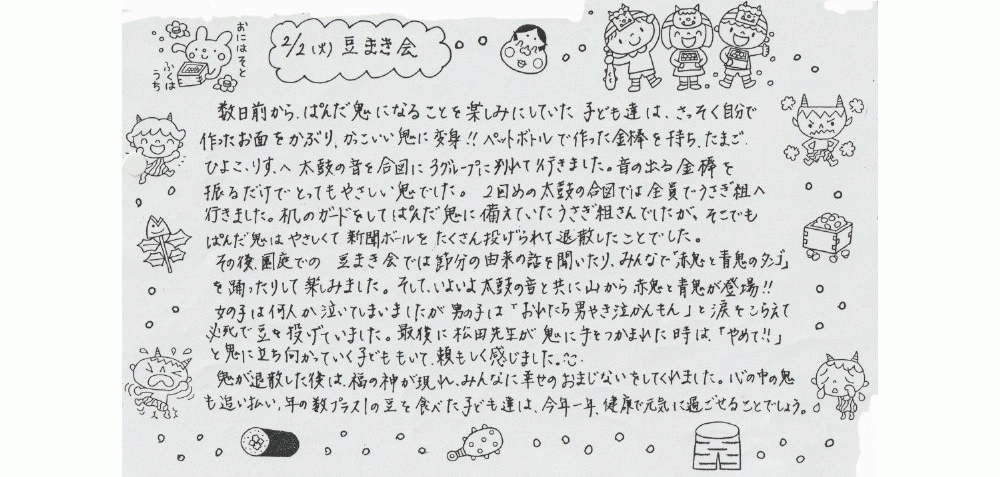 おにはそと
ふくは
うち
2/2(火) 豆まき会
数日前から、ぱんだ鬼になることを楽しみにしていた子ども達は、さっそく自分で
作ったお面をかぶり、かっこいい鬼に変身!! ペットボトルで作った金棒を持ち、たまご、
ひよこ、りす、へ 太鼓の音を合図に3グループに別れて行きました。音の出る金棒を
振るだけでとってもやさしい鬼でした。 2回めの太鼓の合図では全員でうさぎ組へ
行きました。机のガードをしてぱんだ鬼に備えていたうさぎ組さんでしたが、そこでも
ぱんだ鬼はやさしくて新聞ボールをたくさん投げられて退散したことでした。
その後、園庭での 豆まき会では節分の由来の話を聞いたり、みんなで「赤鬼と青鬼のタンゴ」
を踊ったりして楽しみました。そして、いよいよ太鼓の音と共に山から赤鬼と青鬼が登場!!
女の子は何人か泣いてしまいましたが男の子は「おれたち男やき泣かんもん」と涙をこらえて
必死で豆を投げていました。最後に松田先生が鬼に手をつかまれた時は、「やめて!!」
と鬼に立ち向かっていく子どももいて、頼もしく感じました。
鬼が退散した後は、福の神が現れ、みんなに幸せのおまじないをしてくれました。心の中の鬼
も追い払い、年の数プラス1の豆を食べた子ども達は、今年一年、健康で元気に過ごせることでしょう。